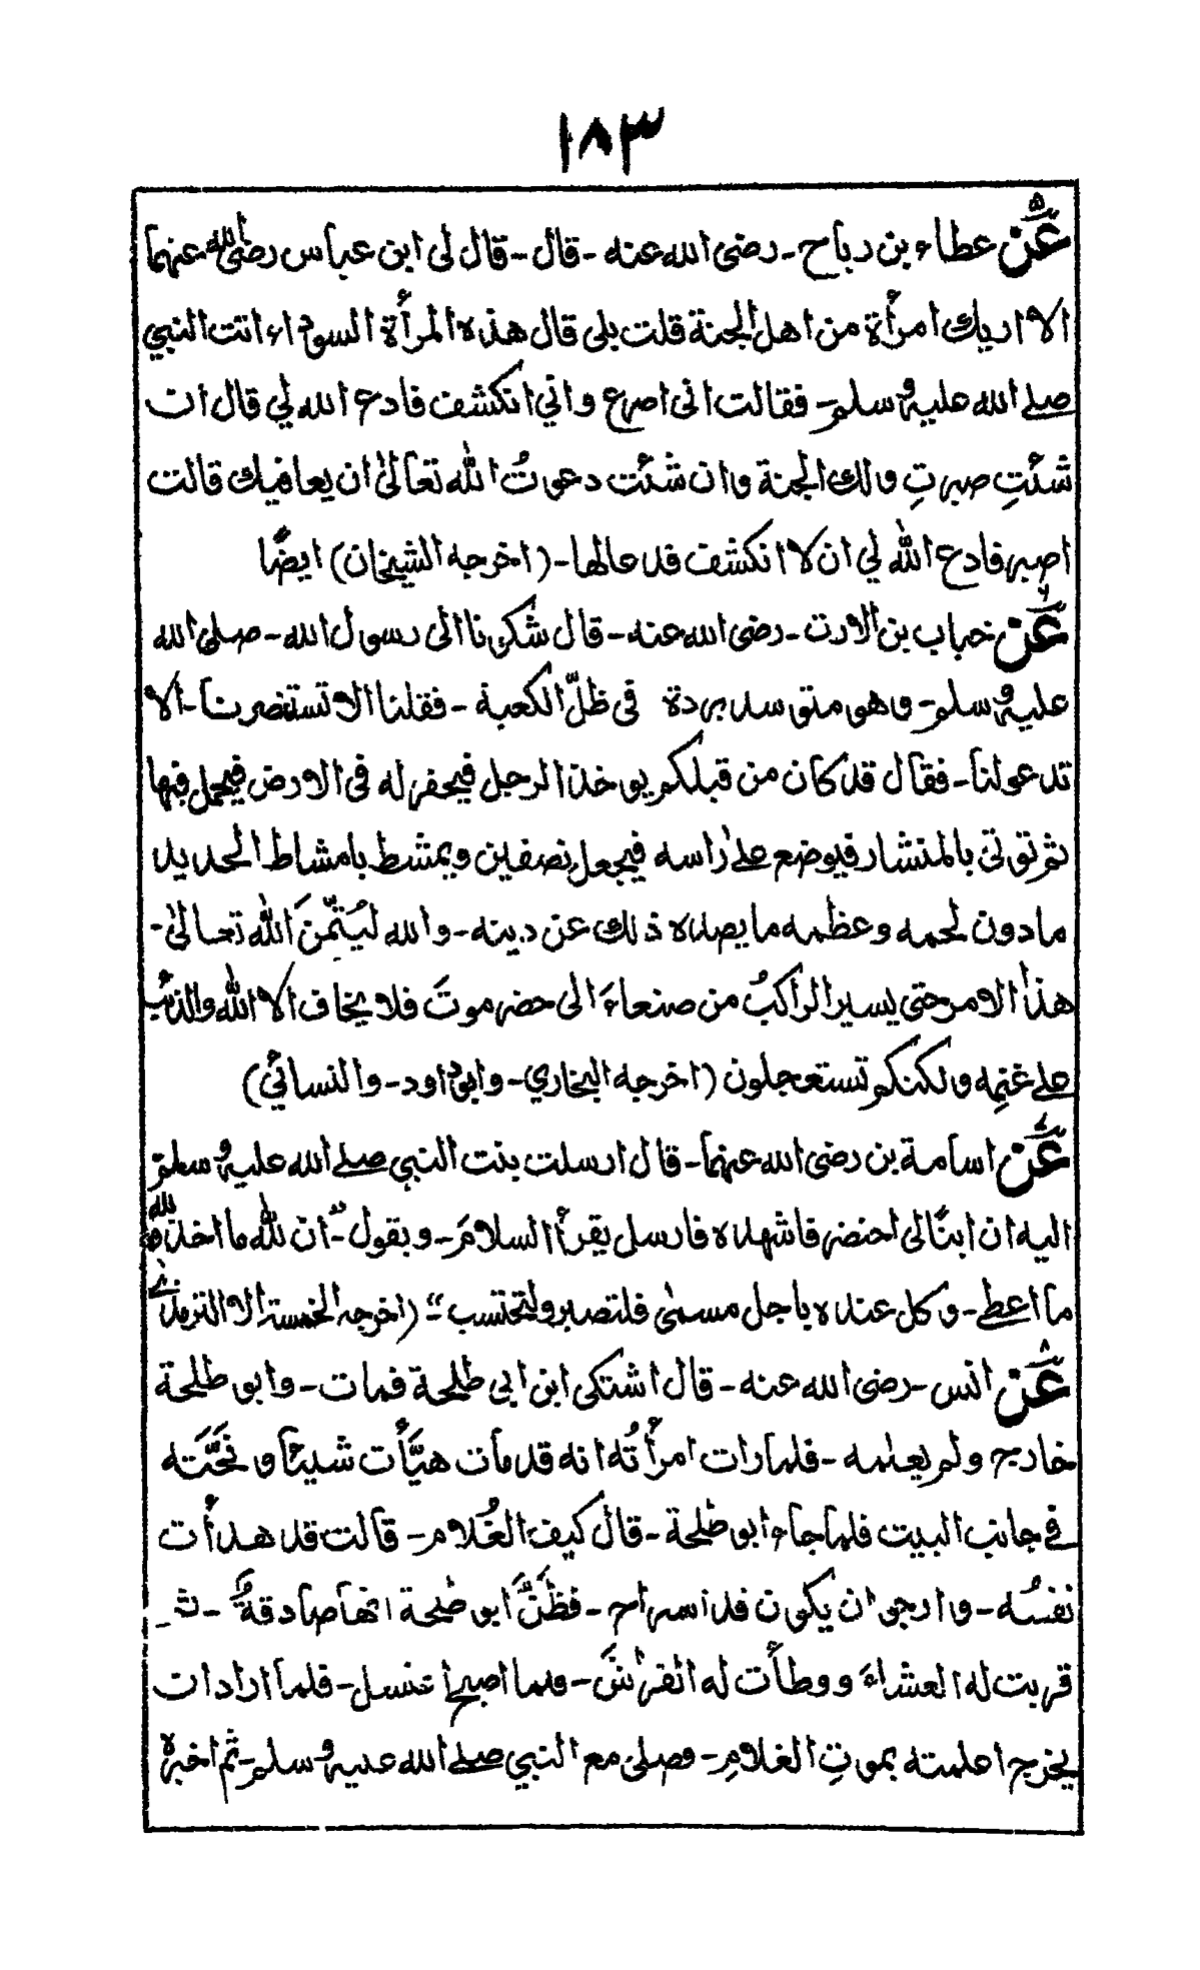 ١٨٣
٥ عَنْ عطاء بن رباح - رضى الله عنه - قال - قال لى ابن عباس رضى الله عنهما
الا اريك امرأة من اهل الجنة قلت بلى قال هذه المرأة السوداء اتت النبي
صلے الله عليه وسلم - فقالت انى اصرع واني انكشف فادع الله لي قال ان
شئتِ صبرتِ ولك الجنة وان شئت دعوتُ الله تعالىٰ ان يعافيك قالت
اصبر فادع الله لي ان لا انكشف فدعا لها - (اخرجه الشيخان) ايضًا
٦ عَنْ خباب بن الارت - رضى الله عنه - قال شكونا الى رسول الله - صلى الله
عليه وسلم - وهو متوسد بردة في ظلّ الكعبة - فقلنا الا تستنصر لنا - الا
تدعو لنا - فقال قد كان من قبلكم يوخذ الرجل فيحفر له فى الارض فيجعل فيها
ثم توتىٰ بالمنشار فيوضع علےٰ راسه فيجعل نصفين ويمشط بامشاط الحديد
مادون لحمه وعظمه ما يصده ذلك عن دينه - والله ليُتمّنَ الله تعالىٰ -
هذا الامر حتى يسير الراكبُ من صنعاءَ الى حضر موتَ فلا يخاف الا الله والذئب
علے غنمِه ولكنكم تستعجلون (اخرجه البخاري - وابو داود - والنسائي)
٧ عَنْ اسامة بن رضى الله عنهما - قال ارسلت بنت النبي صلے الله عليه وسلم
اليه ان ابنًا لى احتضر فاشهده فارسل يقرأ السلامَ - ويقول - "ان لله ما اخذ ولله
ما اعطے - وكل عنده باجل مسمىٰ فلتصبر ولتحتسب" - (اخرجه الخمسة الا الترمذے)
٨ عَنْ انس - رضى الله عنه - قال اشتكى ابن ابى طلحة فمات - وابو طلحة
خارج ولم يعلمه - فلما رات امرأتُه انه قد مات هيَّأت شيئا ونحَّته
فے جانب البيت فلما جاء ابو طلحة - قال كيف الغُلام - قالت قد هدأت
نفسُه - وارجو ان يكون قد اسراح - فظنَّ ابو طلحة انها صادقةٌ -
قربت له العشاءَ ووطأت له الفراشَ - فلما اصبح اغتسل - فلما اراد ان
يخرج اعلمته بموتِ الغلامِ - فصلى مع النبي صلے الله عليه وسلم - ثم اخبره